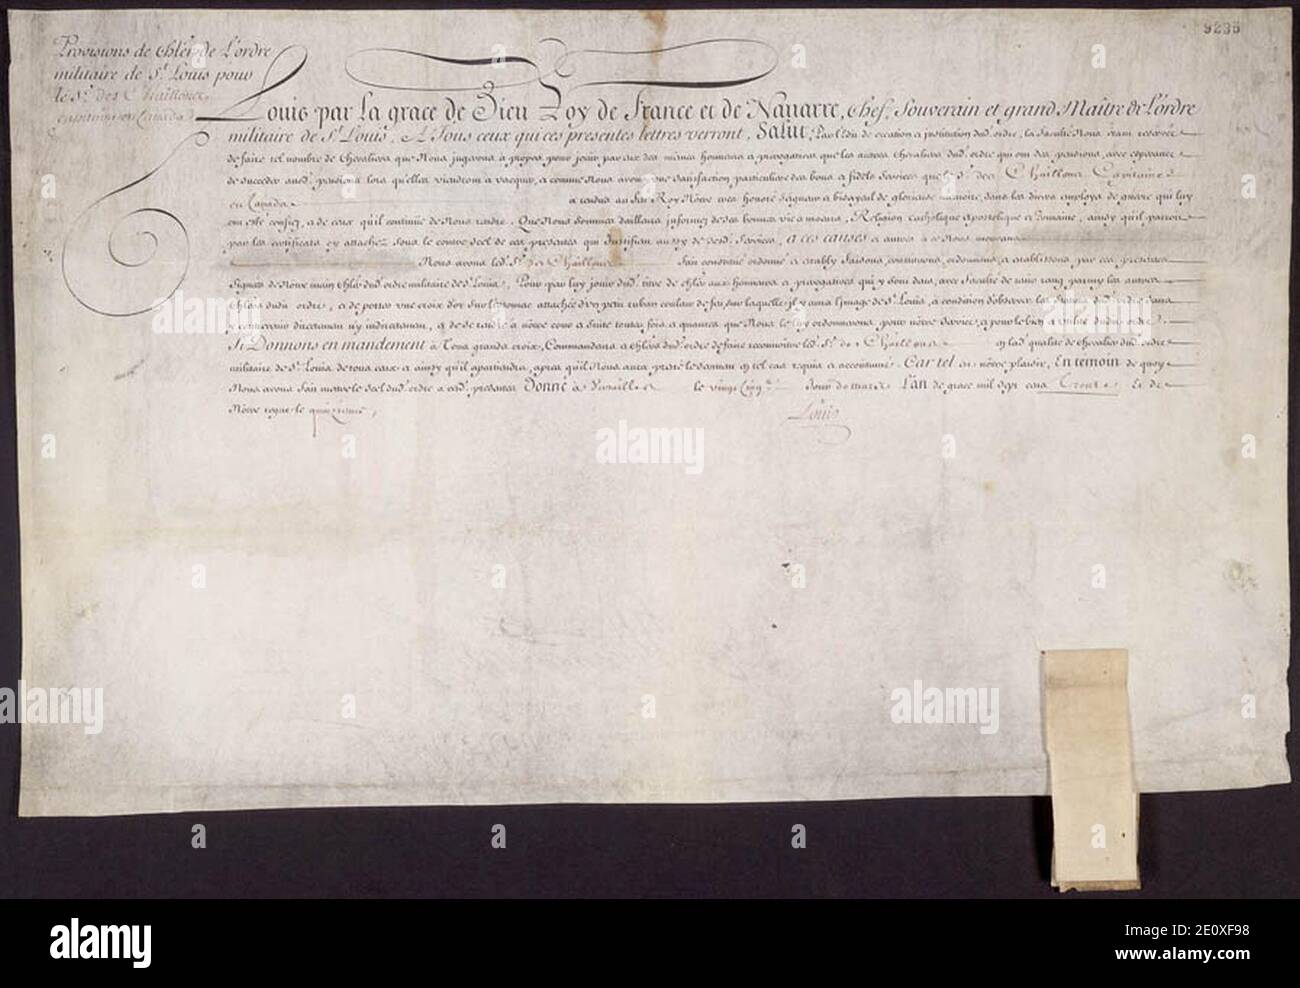 9236
Provisions de Chler de L'ordre
militaire de St. Louis pour
le Sr. des Chaillons
Capitaine en Canada
Louis par la grace de Dieu Roy de france et de Navarre, Chef, Souverain et grand Maître de l'ordre
militaire de St. Louis, A Tous ceux qui ces presentes lettres verront, Salut, Par l'Edit de creation et institution dud. ordre, la faculté Nous etant reservée
de faire tel nombre de Chevaliers que Nous jugerons à propos, pour jouir par eux des mêmes honneurs et prerogatives que les autres Chevaliers dud. ordre qui ont des pensions, avec esperance
de succeder ausd. pensions lors qu'elles viendront à vacquer, et comme Nous avons une satisfaction particuliere des bons et fidels services que le Sr. des Chaillons Capitaine
en Canada a rendus au feu Roy Nôtre tres honoré Seigneur et bisayeul de glorieuse memoire, dans les divers employs de guerre qui luy
ont esté confiez, et de ceux qu'il continue de Nous rendre. Que Nous sommes d'ailleurs informez de ses bonnes vie et moeurs, Religion Catholique apostolique et Romaine, ainsy qu'il paroît
par les certificats cy attachez sous le contre scel de ces presentes qui justifient aussy de sesd. services, A ces causes et autres à ce Nous mouvans
Nous avons led. Sr. des Chaillons fait constitué ordonné et étably faisons, constituons, ordonnons et établissons par ces presentes
Signées de Nôtre main Chler. dud. ordre militaire de St. Louis, Pour par luy jouir dud. titre de chler. aux honneurs et prerogatives qui y sont dûs, avec faculté de tenir rang parmy les autres
Chlers. dudit ordre, et de porter une croix d'or sur l'estomac attachée d'un petit ruban couleur de feu, sur laquelle il y aura l'jmage de St. Louis, à condition d'observer les Statuts dudit ordre sans
y contrevenir directement n'y indirectement, et de se rendre à nôtre cour et suite toutes fois et quantes que Nous le luy ordonnerons, pour nôtre service, et pour le bien et utilité dudit ordre
Si Donnons en mandement à Tous grands croix, Commandeurs et chlers dud. ordre de faire reconnoître led. Sr. des Chaillons en lad. qualité de chevalier dud. ordre
militaire de St. Louis de tous ceux et ainsy qu'il apartiendra, apres qu'il Nous aura presté le serment en tel cas requis et accoutumé. Car tel est nôtre plaisir, En temoin de quoy
Nous avons fait mettre le scel dud. ordre à cesd. presentes Donné à Versailles le vingt Cinqe. Jour de mars L'an de grace mil sept cens Trente Et de
Nôtre regne le quinzième.
Louis
alamy
alamy
alamy
Image ID: 2E0XF98
www.alamy.com